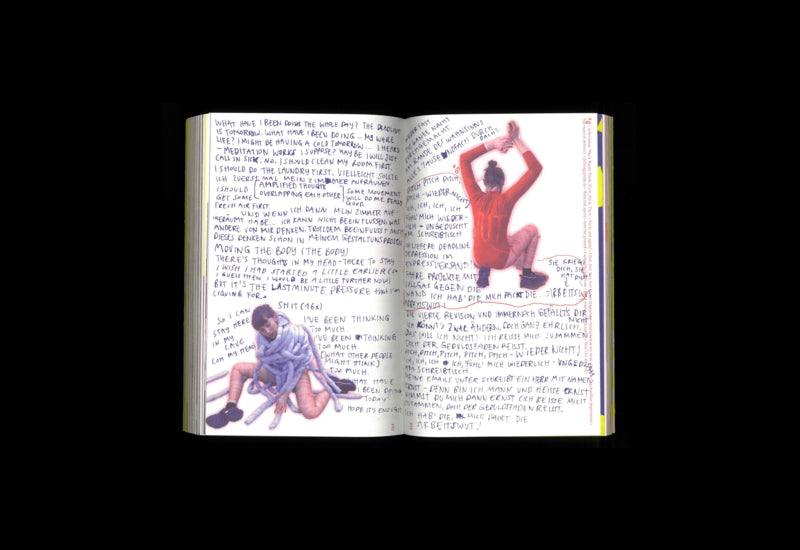 WHAT HAVE I BEEN DOING THE WHOLE DAY? THE DEADLINE
IS TOMORROW. WHAT HAVE I BEEN DOING – MY WHOLE
LIFE? I MIGHT BE HAVING A COLD TOMORROW... I HEARD
– MEDITATION WORKS I SUPPOSE? MAYBE I WILL JUST
CALL IN SICK. NO. I SHOULD CLEAN MY ROOM FIRST.
I SHOULD DO THE LAUNDRY FIRST. VIELLEICHT SOLLTE
ICH ZUERST MAL MEIN ZIMMER AUFRÄUMEN.
I SHOULD
GET SOME
FRESH AIR FIRST.
AMPLIFIED THOUGHTS
OVERLAPPING EACH OTHER
SOME MOVEMENT
WILL DO ME REALLY
GOOD.
– UND WENN ICH DANN MEIN ZIMMER AUF-
GERÄUMT HABE... ICH KANN NICHT BEEINFLUSSEN WAS
ANDERE VON MIR DENKEN. TROTZDEM BEEINFLUSST MICH
DIESES DENKEN SCHON IN MEINEM GESTALTUNGSPROZESS
MOVING THE BODY (THE BODY)
THERE'S THOUGHTS IN MY HEAD – THERE TO STAY
I WISH I HAD STARTED A LITTLE EARLIER
I GUESS THEN I WOULD BE A LITTLE FURTHER NOW)
BUT IT'S THE LAST MINUTE PRESSURE THAT I'M
LIQUING FOR.
SHIT (16x)
SO I CAN
STAY HERE
IN MY
CAVE
(OH MY HEAD)
I'VE BEEN THINKING
TOO MUCH.
I'VE BEEN THINKING
TOO MUCH.
(WHAT OTHER PEOPLE
MIGHT THINK)
TOO MUCH.
WHAT HAVE
I BEEN DOING
TODAY
HOPE IT'S ENOUGH
FAST
DIE GANZE NACHT
GEMACHT
AM RANDE DES WAHNSINNS
ALLES TAUSENDFACH DURCH
DACHT
PITCH PITCH PITCH,
PITCH – WIEDER NICHT!
ICH, ICH, ICH, ICH
FÜHL' MICH WIEDER-
LICH – UNGEDUSCHT
AM SCHREIBTISCH.
LIEFERE DEADLINE
DEPRESSION IM
EXPRESSVERSAND!
FAHRE PROJEKTE MIT
VOLLGAS GEGEN DIE
WAND ICH HAB' DIE, MICH PACKT DIE – ARBEITSWUT
ARBEITSWUT!
SIE KRIEGT
DICH, SIE
TUT DIR
NICHT
DIE VIERTE REVISION UND IMMERNOCH GEFÄLLT'S DIR
ICH KÖNNT'S ZWAR ÄNDERN, DOCH GANZ EHRLICH:
DAS WILL ICH NICHT! ICH REISS MICH ZUSAMMEN
DOCH DER GEDULDSFADEN REISST.
PITCH, PITCH, PITCH, PITCH, PITCH – WIEDER NICHT!
ICH, ICH, ICH ICH, FÜHL' MICH WIEDERLICH – UNGEDUSCHT
AM SCHREIBTISCH.
MEINE EMAILS UNTERSCHREIBT EIN HERR MIT NAMEN
ERNST – DENN BIN ICH MANN UND HEISSE ERNST
NIMMST DU MICH DANN ERNST ICH REISSE MICH
ZUSAMMEN, DOCH DER GEDULDSFADEN REISST.
ICH HAB' DIE, MICH PACKT DIE
ARBEITSWUT!